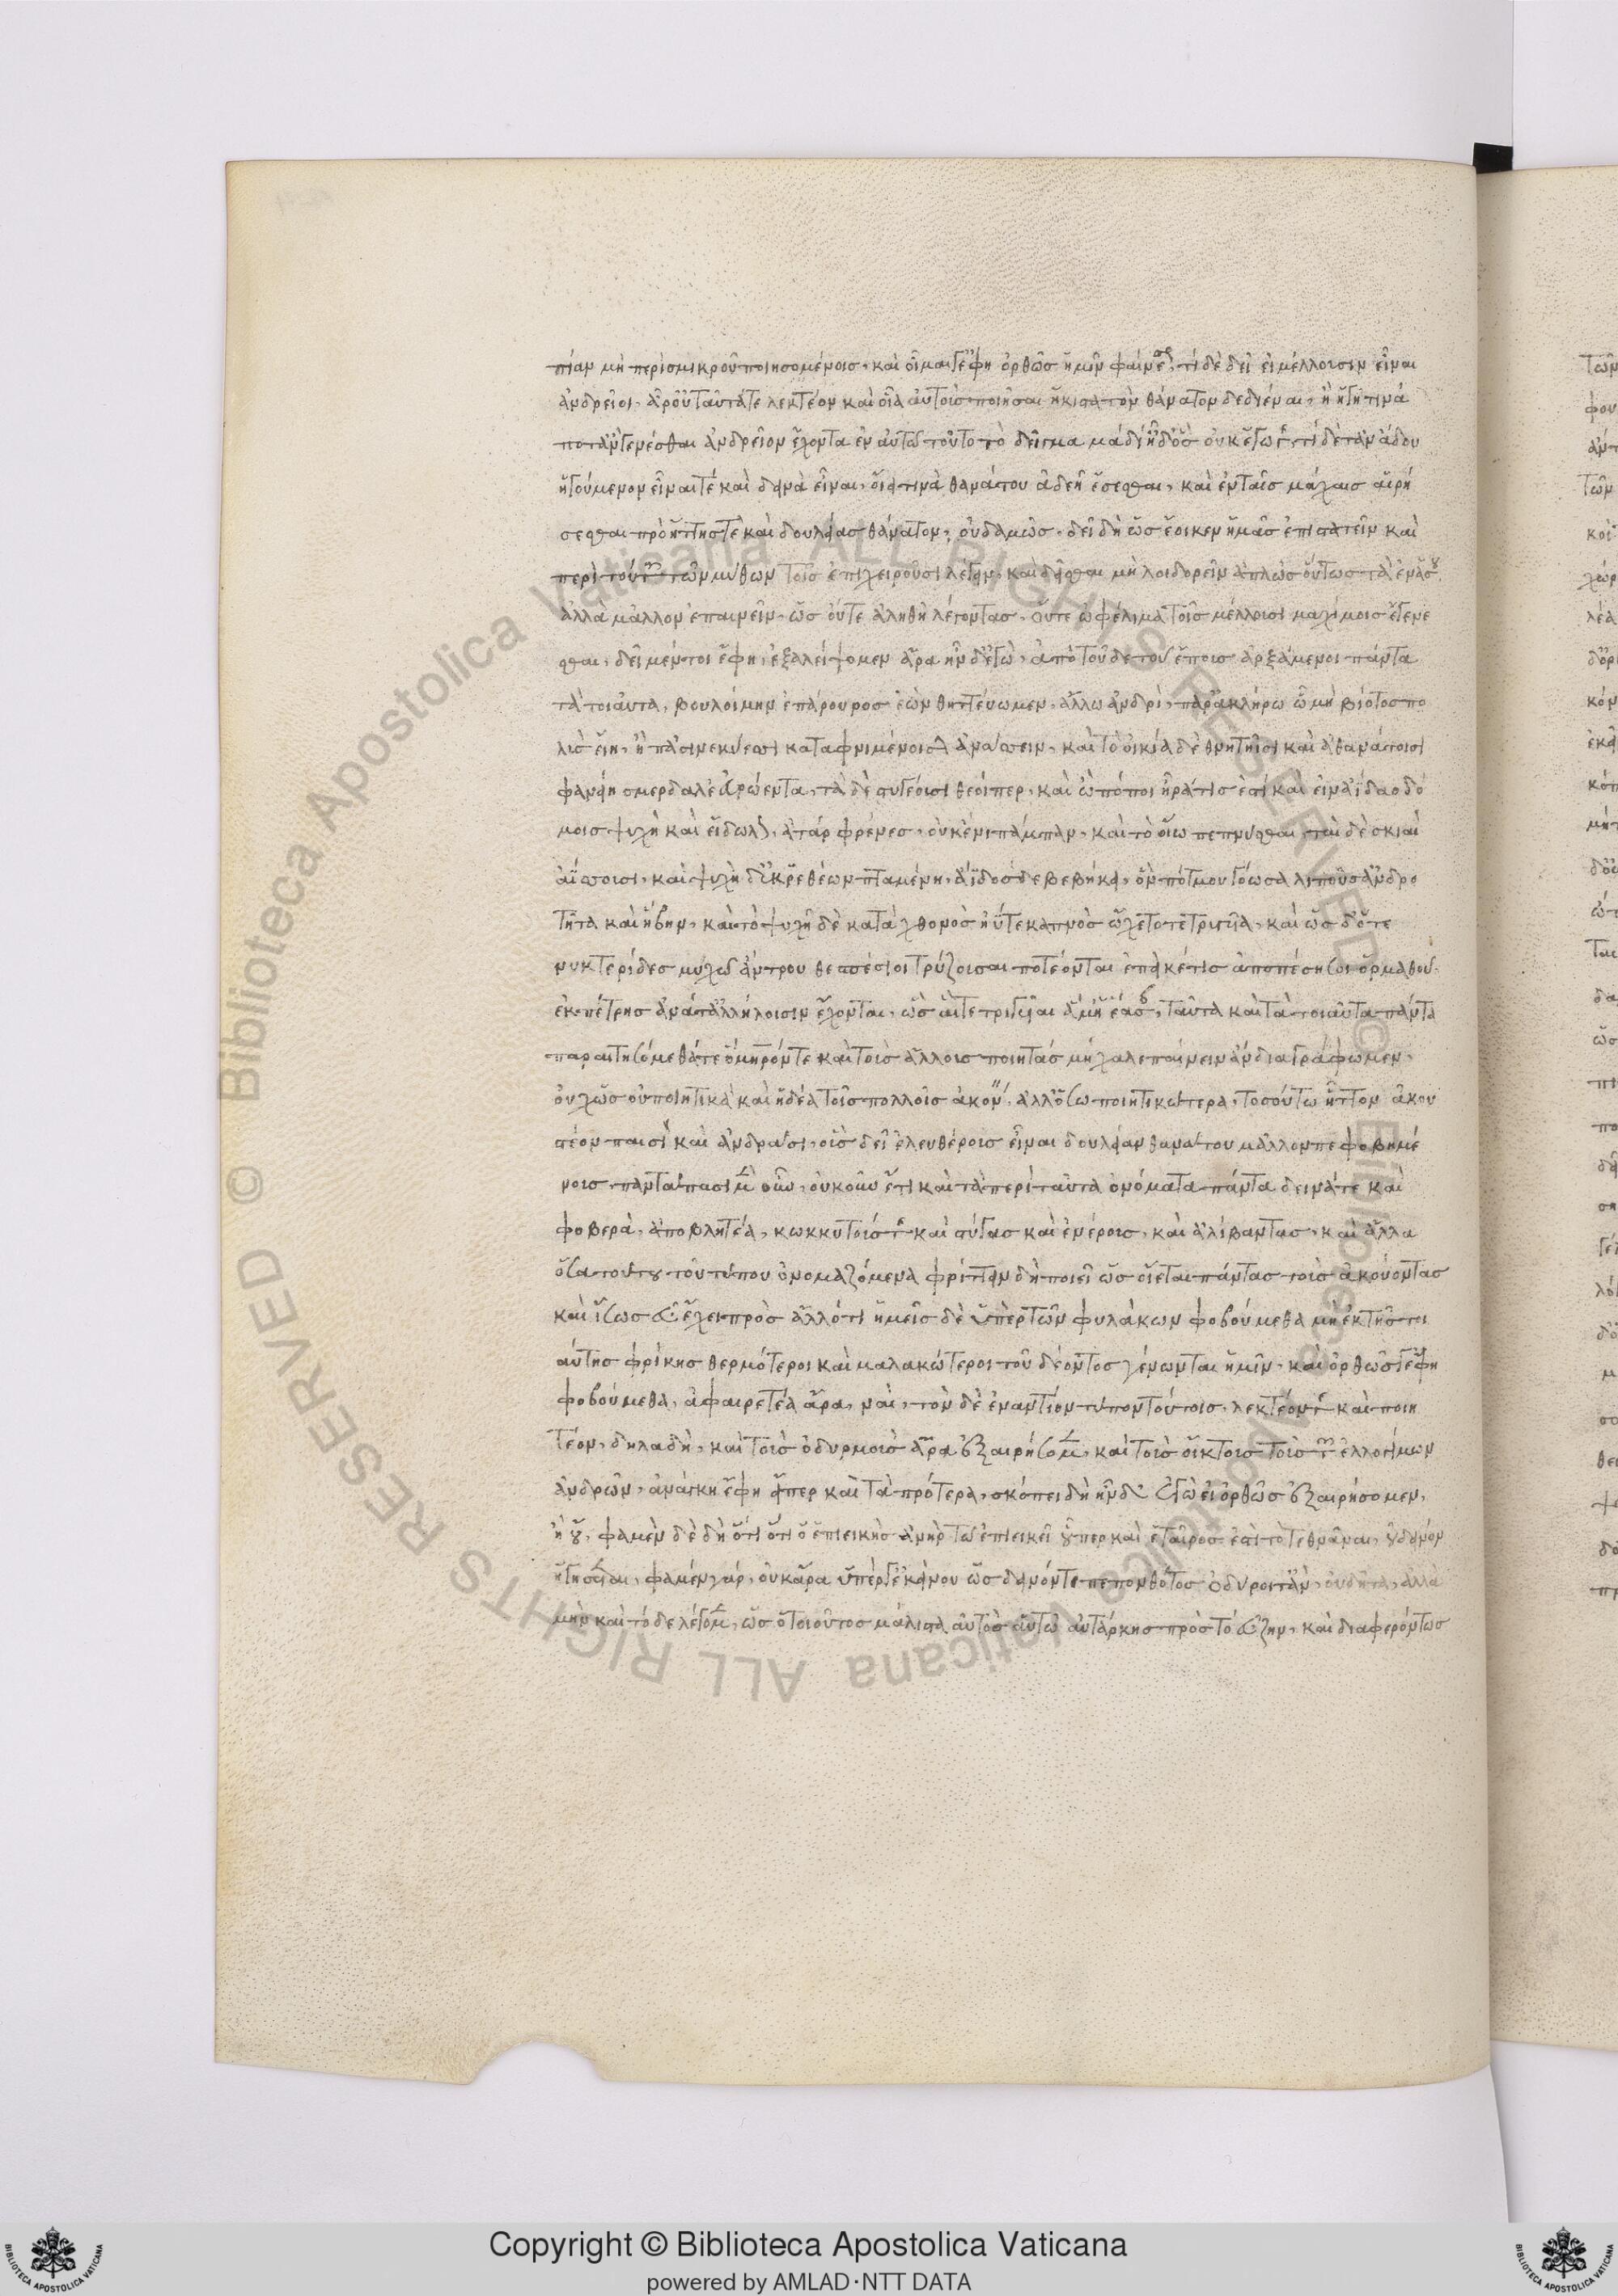 πίαν μὴ περὶ σμικροῦ ποιησομένοις. καὶ οἶμαί γ' ἔφη ὀρθῶς ἡμῖν φαίνεσθαι. τί δὲ δεῖ εἰ μέλλοισιν εἶναι
ἀνδρεῖοι. ἆρ' οὐ ταῦτά τε λεκτέον καὶ οἷα αὐτοὺς ποιῆσαι ἥκιστα τὸν θάνατον δεδιέναι, ἢ ἡγῆ τινά
ποτ' ἂν γενέσθαι ἀνδρεῖον ἔχοντα ἐν αὑτῶ τοῦτο τὸ δεῖγμα μὰ δί' ἦ δ' ὃς οὐκ ἔγωγε, τί δὲ τἀν ἅδου
ἡγούμενον εἶναί τε καὶ δεινὰ εἶναι, οἴει τινὰ θανάτου ἀδεῆ ἔσεσθαι, καὶ ἐν ταῖς μάχαις αἱρή
σεσθαι πρὸ ἥττης τε καὶ δουλείας θάνατον, οὐδαμῶς. δεῖ δὴ ὡς ἔοικεν ἡμᾶς ἐπιστατεῖν καὶ
περὶ τούτων τῶν μύθων τοῖς ἐπιχειροῦσι λέγειν, καὶ δεῖσθαι μὴ λοιδορεῖν ἁπλῶς οὕτως τὰ ἐν ἅδου
ἀλλὰ μᾶλλον ἐπαινεῖν. ὡς οὔτε ἀληθῆ λέγοντας. οὔτε ὠφέλιμα τοῖς μέλλοισι μαχίμοις ἔγενε
σθαι, δεῖ μέντοι ἔφη, ἐξαλείψομεν ἄρα ἦν δ' ἐγώ, ἀπὸ τοῦδε τοῦ ἔποις ἀρξάμενοι πάντα
τὰ τοιαῦτα, βουλοίμην ἐπάρουρος ἐὼν θητεύωμεν, ἄλλω ἀνδρὶ, παρ' ἀκλήρω ὧ μὴ βίοτος πο
λὺς εἴη, ἢ πᾶσιν νεκύεσσι καταφθιμένοισι ἀνάσσειν, καὶ τὸ οἰκία δὲ θνητοῖσι καὶ ἀθανάτοισι
φανείη σμερδαλέ' εὐρώεντα, τὰ δὲ στυγέουσι θεοί περ, καὶ ὢ πόποι ἦ ῥά τις ἐστὶ καὶ εἰν ἀΐδαο δό
μοις ψυχὴ καὶ εἴδωλον, ἀτὰρ φρένες, οὐκ ἔνι πάμπαν, καὶ τὸ οἴω πεπνύσθαι, ταὶ δὲ σκιαὶ
ἀΐσσοισι, καὶ ψυχὴ δ' ἐκ ῥεθέων πταμένη, ἄϊδος δε βεβήκει, ὃν πότμον γόωσα λιποῦσ' ἀνδρο
τῆτα καὶ ἥβην, καὶ τὸ ψυχὴ δὲ κατὰ χθονὸς ἠΰτε καπνὸς ὤχετο τετριγυῖα, καὶ ὡς δ' ὅτε
νυκτερίδες μυχῶ ἄντρου θεσπεσίοι τρύζοισαι ποτέονται ἐπεί κέ τις ἀποπέσησιν ὁρμαθοῦ.
ἐκ πέτρης ἀνά τ' ἀλλήλοισιν ἔχονται, ὣς αἵ τετριγυῖαι ἅμ' ἤεσαν, ταῦτα καὶ τὰ τοιαῦτα πάντα
παραιτησόμεθά τε ὅμηρόν τε καὶ τοὺς ἄλλοις ποιητὰς μὴ χαλεπαίνειν ἂν διαγράφωμεν.
οὐχ ὡς οὐ ποιητικὰ καὶ ἡδέα τοῖς πολλοῖς ἀκούειν. ἀλλ' ὅσω ποιητικώτερα, τοσούτω ἧττον ἀκου
στέον παισὶ καὶ ἀνδράσι, οἷς δεῖ ἐλευθέροις εἶναι δουλείαν θανάτου μᾶλλον πεφοβημέ
νοις, παντάπασι μὲν οὖν, οὐκοῦν ἔτι καὶ τὰ περὶ ταῦτα ὀνόματα πάντα δεινά τε καὶ
φοβερὰ, ἀποβλητέα, κωκκυτοίς τε καὶ στύγας καὶ ἐνέροις, καὶ ἀλίβαντας, καὶ ἄλλα
ὅσα τούτου τοῦ τύπου ὀνομαζόμενα φρίττειν δὴ ποιεῖ ὡς οἴεται πάντας τοὺς ἀκούοντας
καὶ ἴσως εὖ ἔχει πρὸς ἄλλό τι ἡμεῖς δὲ ὑπὲρ τῶν φυλάκων φοβούμεθα μὴ ἐκ τῆς τοι
αύτης φρίκης θερμότεροι καὶ μαλακώτεροι τοῦ δέοντος γένωνται ἡμῖν, καὶ ὀρθῶς γ' ἔφη
φοβούμεθα, ἀφαιρετέα ἄρα, ναί, τὸν δὲ ἐναντίον τύπον τούτοις. λεκτέον τε καὶ ποιη
τέον, δηλαδὴ, καὶ τοὺς ὀδυρμοὺς ἄρα ἐξαιρήσομεν, καὶ τοὺς οἴκτοις τοὺς τῶν ἐλλογίμων
ἀνδρῶν, ἀνάγκη ἔφη εἴπερ καὶ τὰ πρότερα, σκόπει δὴ ἦν δ' ἐγὼ εἰ ὀρθῶς ἐξαιρήσομεν,
ἢ οὔ, φαμὲν δὲ δὴ ὅτι ὅτι ὁ ἐπιεικὴς ἀνὴρ τῶ ἐπιεικεῖ οὗπερ καὶ ἑταῖρος ἐστὶ τὸ τεθνᾶναι, οὐ δεινὸν
ἡγήσεται, φαμὲν γάρ, οὐκ ἄρα ὑπέρ γ' ἐκείνου ὡς δεινόν τι πεπονθότος ὀδύροιτ' ἂν, οὐδῆτα, ἀλλὰ
μὴν καὶ τόδε λέγομεν, ὡς ὁ τοιοῦτος μάλιστα αὐτὸς αὑτῶ αὐτάρκης πρὸς τὸ εὖ ζῆν, καὶ διαφερόντως
© Biblioteca Apostolica Vaticana ALL RIGHTS RESERVED
Copyright © Biblioteca Apostolica Vaticana
powered by AMLAD·NTT DATA